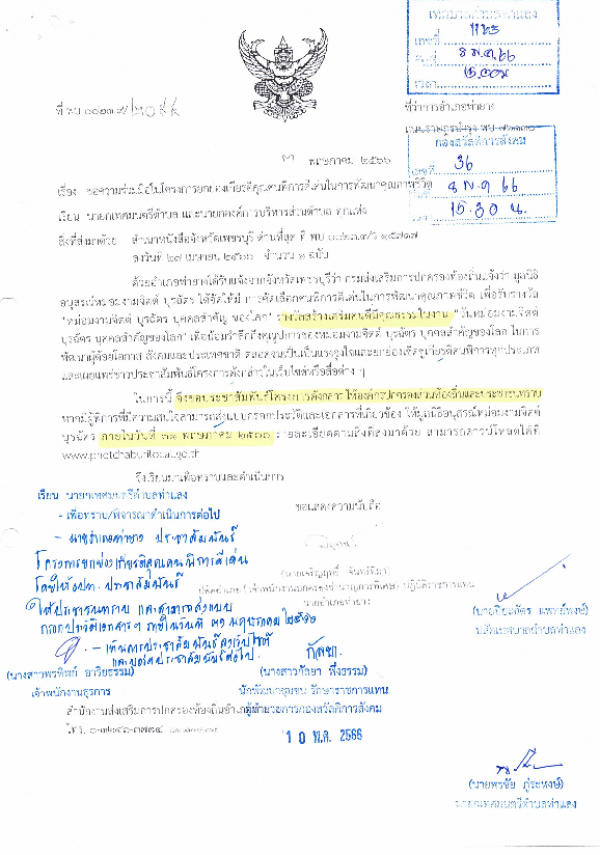 เลขที่ 1165
วันที่ ๘ พ.ค. ๖๖
เวลา
ที่ พบ ๐๐๒๓.๙/๒๐๙๔
ที่ว่าการอำเภอท่ายาง
กองสวัสดิการสังคม
เลขที่ 36
๘ พ.ค ๖๖
15.30 น.
พฤษภาคม ๒๕๖๖
เรื่อง ขอความร่วมมือในโครงการยกย่องเกียรติคุณคนพิการดีเด่นในการพัฒนาคุณภาพชีวิต
เรียน นายกเทศมนตรีตำบล และนายกองค์การบริหารส่วนตำบล ทุกแห่ง
สิ่งที่ส่งมาด้วย สำเนาหนังสือจังหวัดเพชรบุรี ด่วนที่สุด ที่ พบ ๐๐๒๓.๓/ว
ลงวันที่ ๒๗ เมษายน ๒๕๖๖ จำนวน ๑ ฉบับ
ด้วยอำเภอท่ายางได้รับแจ้งจากจังหวัดเพชรบุรีว่า กรมส่งเสริมการปกครองท้องถิ่นแจ้งว่า มูลนิธิ
อนุสรณ์หม่อมงามจิตต์ บุรฉัตร ได้จัดให้มีการคัดเลือกคนพิการดีเด่นในการพัฒนาคุณภาพชีวิต เพื่อรับรางวัล
"หม่อมงามจิตต์ บุรฉัตร บุคคลสำคัญของโลก" รางวัลสร้างเสริมคนดีมีคุณธรรมในงาน "วันหม่อมงามจิตต์
บุรฉัตร บุคคลสำคัญของโลก" เพื่อน้อมรำลึกถึงคุณูปการของหม่อมงามจิตต์ บุรฉัตร บุคคลสำคัญของโลก ในการ
พัฒนาผู้ด้อยโอกาส สังคมและประเทศชาติ ตลอดจนเป็นแรงจูงใจและยกย่องเชิดชูเกียรติคนพิการทุกประเภท
และเผยแพร่ข่าวประชาสัมพันธ์โครงการดังกล่าวในเว็บไซต์หรือสื่อต่าง ๆ
ในการนี้ จึงขอประชาสัมพันธ์โครงการดังกล่าว ให้องค์กรปกครองส่วนท้องถิ่นและประชาชนทราบ
หากมีผู้พิการที่มีความสนใจสามารถส่งแบบกรอกประวัติและเอกสารที่เกี่ยวข้อง ให้มูลนิธิอนุสรณ์หม่อมงามจิตต์
บุรฉัตร ภายในวันที่ ๓๑ พฤษภาคม ๒๕๖๖ รายละเอียดตามสิ่งที่ส่งมาด้วย สามารถดาวน์โหลดได้ที่
www.phetchaburilocal.go.th
จึงเรียนมาเพื่อทราบและดำเนินการ
เรียน นายกเทศมนตรีตำบลท่าแลง
ขอแสดงความนับถือ
- เพื่อทราบ/พิจารณาดำเนินการต่อไป
- นายอำเภอท่ายาง ประชาสัมพันธ์
โครงการยกย่องเกียรติคุณคนพิการดีเด่น
โดยให้อปท. ประชาสัมพันธ์
ให้ประชาชนทราบ และสามารถส่งแบบ
กรอกประวัติเอกสารฯ ภายในวันที่ ๓๑ พฤษภาคม ๒๕๖๖
- เห็นควรประชาสัมพันธ์ลงเว็บไซต์
และบอร์ดประชาสัมพันธ์ต่อไป.
นายอำเภอท่ายาง
ปลัดเทศบาลตำบลท่าแลง
(นางสาวพรทิพย์ อาริยธรรม)
(นางสาวกัลยา พึ่งธรรม)
เจ้าพนักงานธุรการ
นักพัฒนาชุมชน รักษาราชการแทน
สำนักงานส่งเสริมการปกครองท้องถิ่นอำเภอ
ผู้อำนวยการกองสวัสดิการสังคม
10 พ.ค. 2566
(นายพรชัย ภู่ระหงษ์)
นายกเทศมนตรีตำบลท่าแลง